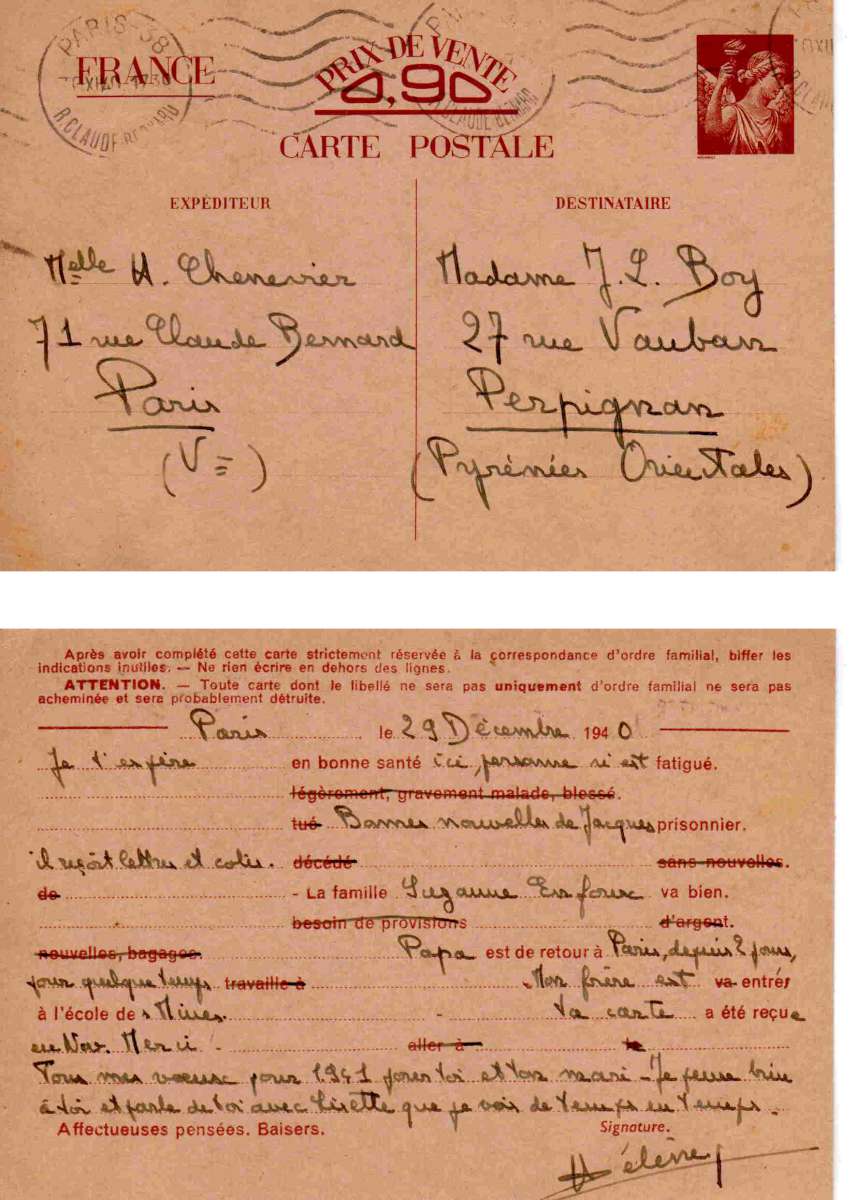 PARIS-58
R. CLAUDE BERNARD
FRANCE
PRIX DE VENTE
0,90
CARTE POSTALE
EXPÉDITEUR
Melle H. Chenevier
71 rue Claude Bernard
Paris
(Ve)
DESTINATAIRE
Madame J. L. Boy
27 rue Vauban
Perpignan
(Pyrénées Orientales)
Après avoir complété cette carte strictement réservée à la correspondance d'ordre familial, biffer les
indications inutiles. — Ne rien écrire en dehors des lignes.
ATTENTION. — Toute carte dont le libellé ne sera pas uniquement d'ordre familial ne sera pas
acheminée et sera probablement détruite.
Paris le 29 Décembre 1940
Je t'espère en bonne santé ici, personne n'est fatigué.
légèrement, gravement malade, blessé.
tué Bonnes nouvelles de Jacques prisonnier.
il reçoit lettres et colis. décédé sans nouvelles.
de - La famille Suzanne va bien.
besoin de provisions d'argent.
nouvelles, bagages. Papa est de retour à Paris, depuis 2 jours,
pour quelque temps travaille à Mon frère est va entrer
à l'école des Mines. - Ta carte a été reçue
en Nov. Merci. aller à le
Tous mes voeux pour 1941 pour toi et ton mari - Je pense bien
à toi et parle de toi avec Lisette que je vois de temps en temps.
Affectueuses pensées. Baisers. Signature.
Hélène